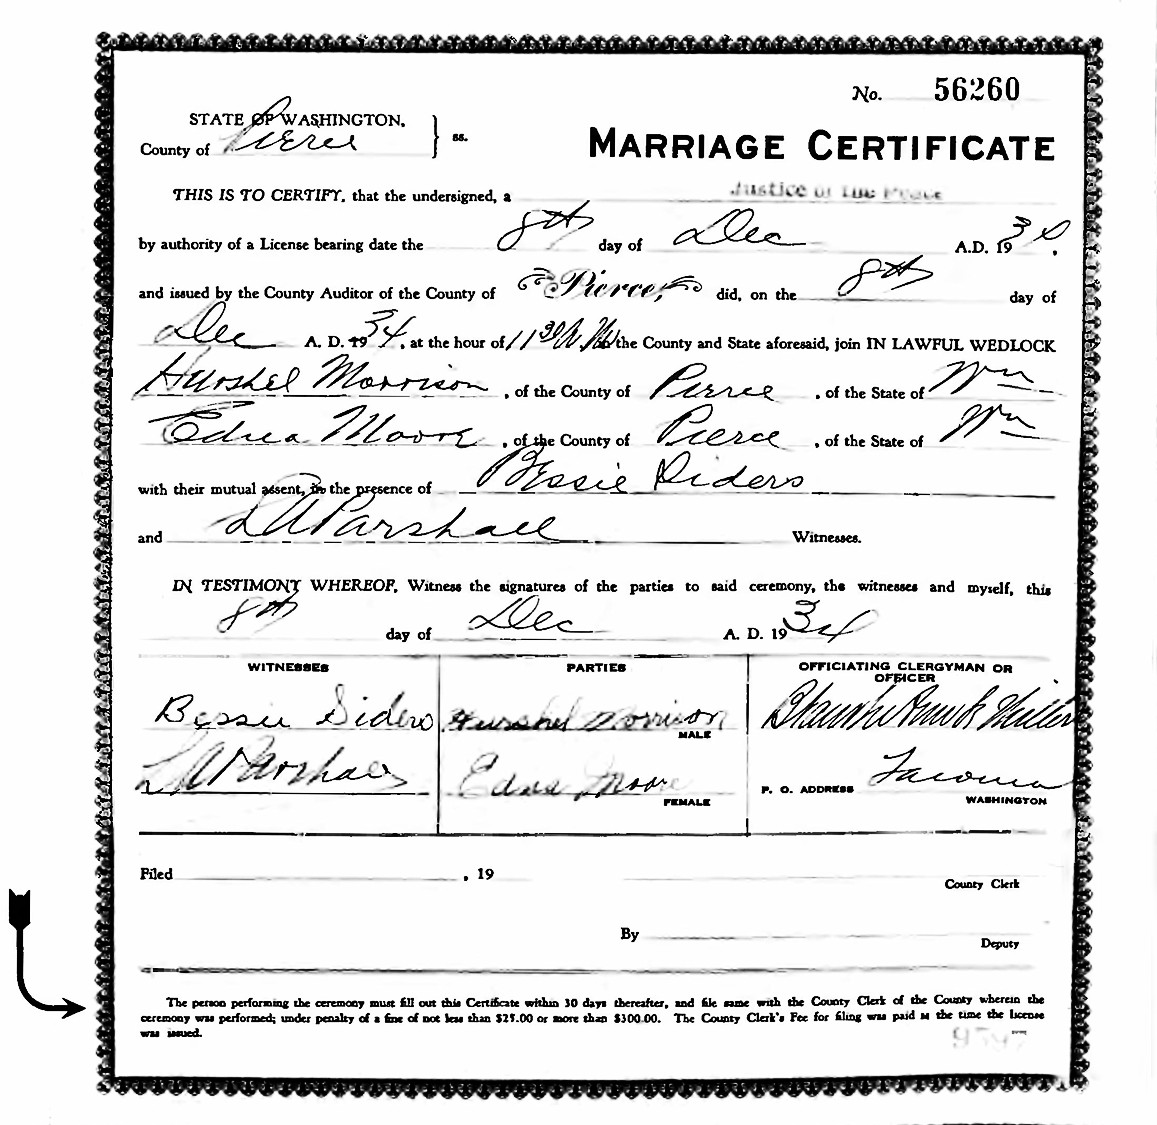 No. 56260
STATE OF WASHINGTON,
County of Pierce } ss.
MARRIAGE CERTIFICATE
THIS IS TO CERTIFY, that the undersigned, a Justice of the Peace
by authority of a License bearing date the 8th day of Dec A.D. 1934,
and issued by the County Auditor of the County of Pierce, did, on the 8th day of
Dec A. D. 1934, at the hour of 11 30 the County and State aforesaid, join IN LAWFUL WEDLOCK
Hurshel Morrison, of the County of Pierce, of the State of Wn
Edna Moore, of the County of Pierce, of the State of Wn
with their mutual assent, in the presence of Bessie Siders
and L A Parshall Witnesses.
IN TESTIMONY WHEREOF, Witness the signatures of the parties to said ceremony, the witnesses and myself, this
8th day of Dec A. D. 1934
WITNESSES PARTIES OFFICIATING CLERGYMAN OR
OFFICER
Bessie Siders Hurshel Morrison Miller
MALE
L A Parshall Edna Moore P. O. ADDRESS Tacoma
FEMALE WASHINGTON
Filed , 19
County Clerk
By
Deputy
The person performing the ceremony must fill out this Certificate within 30 days thereafter, and file same with the County Clerk of the County wherein the
ceremony was performed; under penalty of a fine of not less than $25.00 or more than $300.00. The County Clerk's Fee for filing was paid at the time the license
was issued.